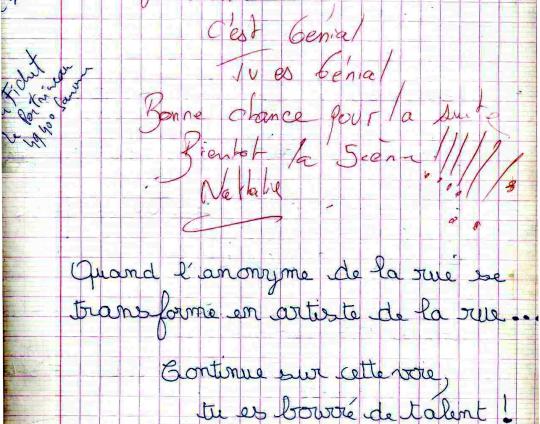 Fichet
49400 Saumur
C'est Génial
Tu es Génial
Bonne chance pour la suite
Bientot la Scène !!!!!!!
Nathalie
Quand l'anonyme de la rue se
transforme en artiste de la rue...
Continue sur cette voie,
tu es bourré de talent !